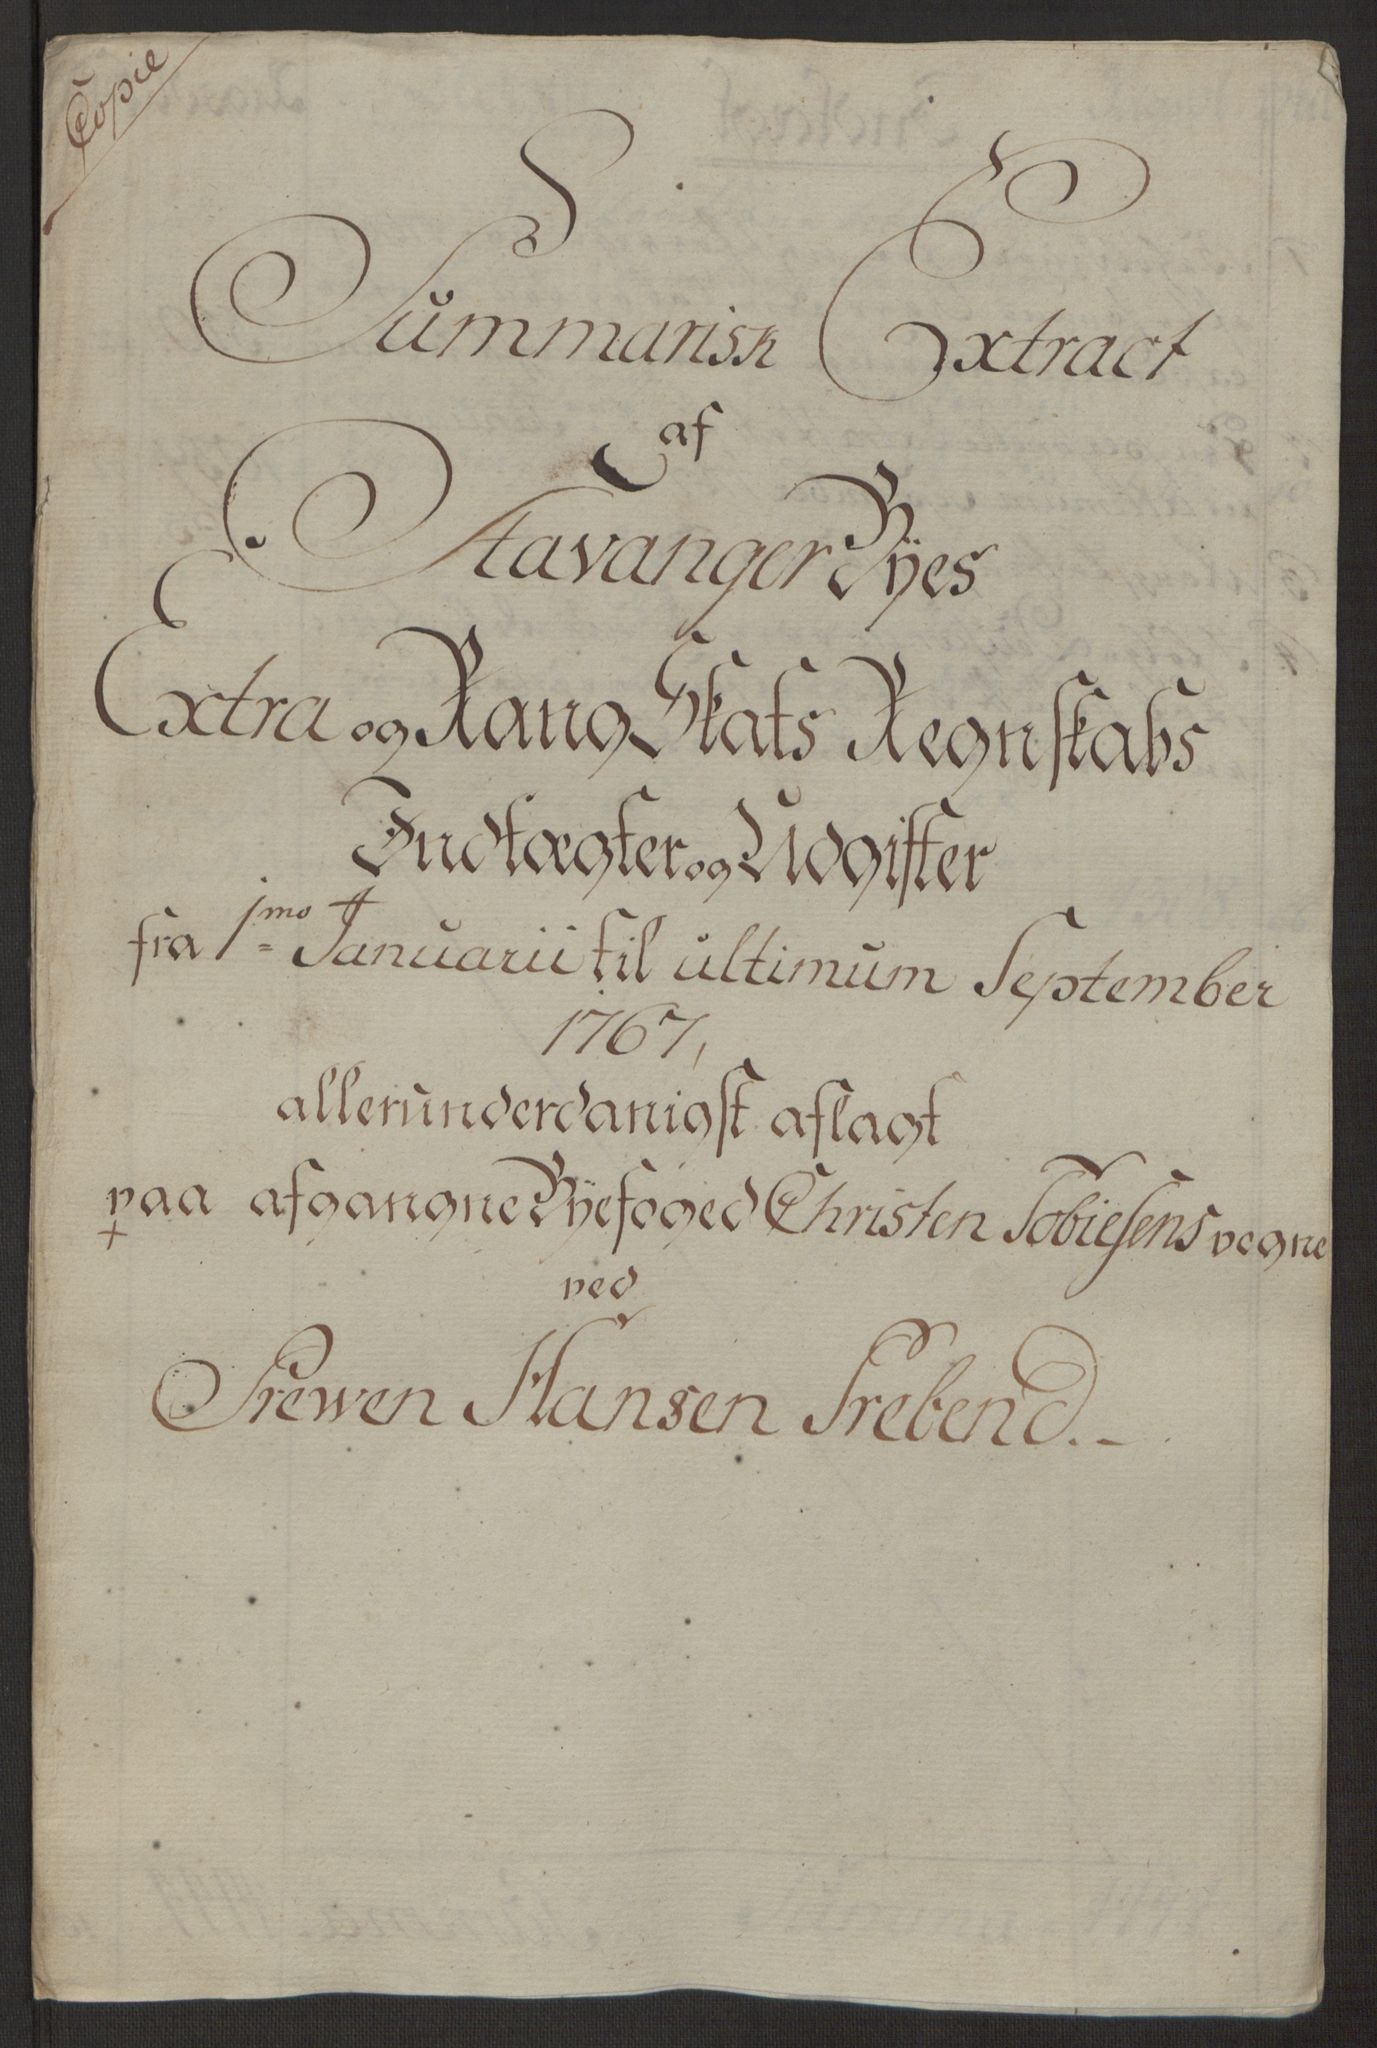 Copie
Summarisk Extract
af
Stavanger Byes
Extra og Rang Skats Regnskabs
Indtægter og Udgifter
fra 1mo Januarii til ultimum September
1767,
allerunderdanigst aflagt
paa afgangne Byefoged Christen Tobiesens vegne
ved
Trewen Hansen Trebend.